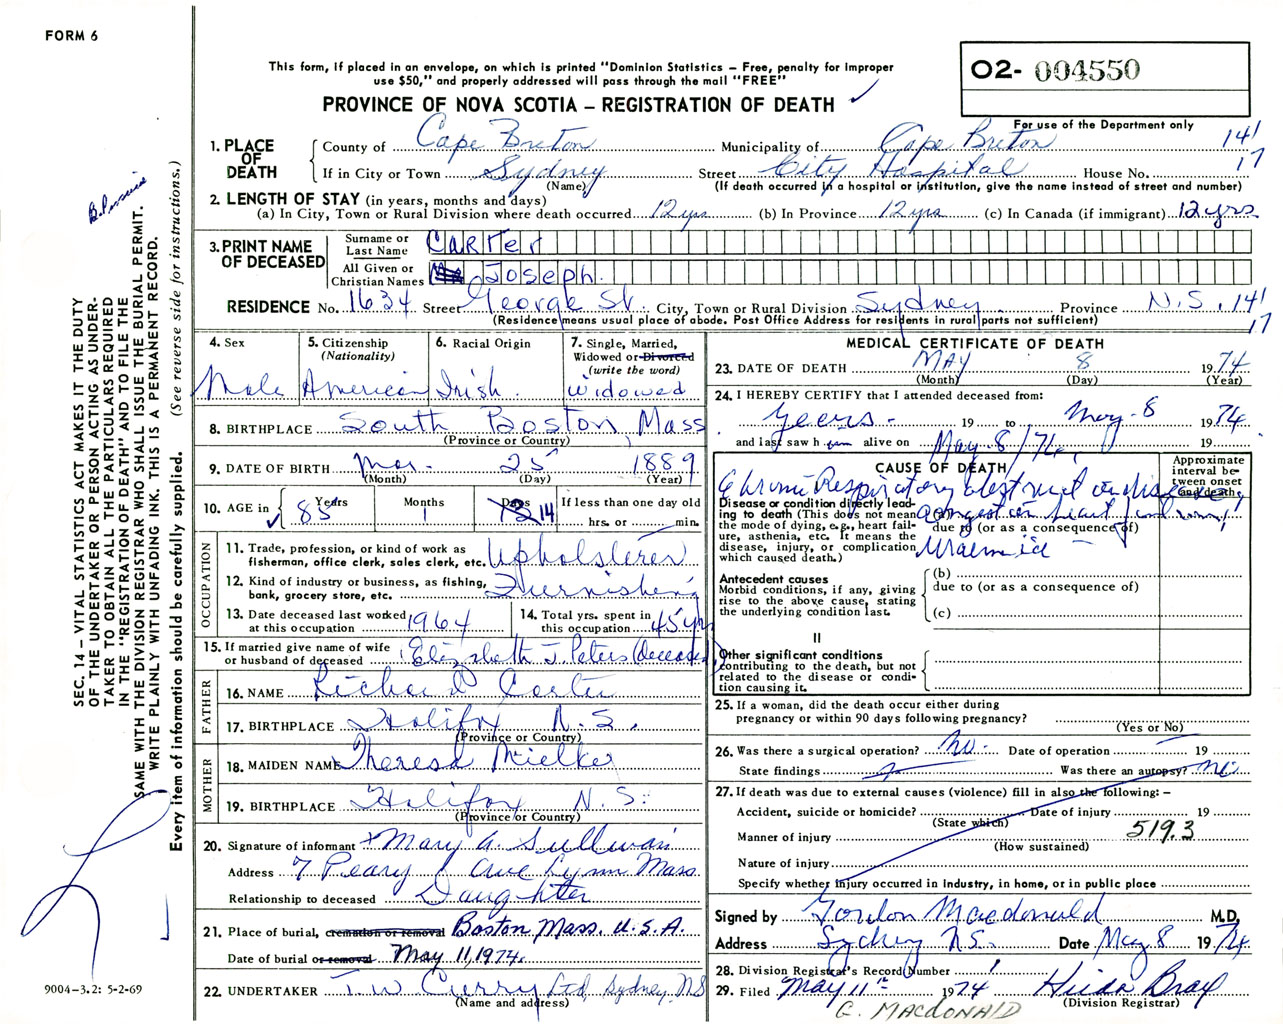 FORM 6
This form, if placed in an envelope, on which is printed "Dominion Statistics – Free, penalty for improper
use $50," and properly addressed will pass through the mail "FREE"
O2- 004550
PROVINCE OF NOVA SCOTIA – REGISTRATION OF DEATH ✓
For use of the Department only
1. PLACE OF DEATH County of Cape Breton Municipality of Cape Breton 141
If in City or Town Sydney Street City Hospital House No. 17
(Name) (If death occurred in a hospital or institution, give the name instead of street and number)
2. LENGTH OF STAY (in years, months and days)
(a) In City, Town or Rural Division where death occurred 12 yrs (b) In Province 12 yrs (c) In Canada (if immigrant) 12 yrs
3. PRINT NAME OF DECEASED Surname or Last Name CARTer
All Given or Christian Names Joseph.
RESIDENCE No. 1634 Street George St. City, Town or Rural Division Sydney Province N.S. 141
(Residence means usual place of abode. Post Office Address for residents in rural parts not sufficient) 17
4. Sex 5. Citizenship (Nationality) 6. Racial Origin 7. Single, Married, Widowed or Divorced (write the word)
Male American Irish widowed
8. BIRTHPLACE South Boston, Mass
(Province or Country)
9. DATE OF BIRTH Mar. 25 1889
(Month) (Day) (Year)
10. AGE in Years Months Days If less than one day old
✓ 85 1 14 hrs. or min.
OCCUPATION
11. Trade, profession, or kind of work as fisherman, office clerk, sales clerk, etc. Upholsterer
12. Kind of industry or business, as fishing, bank, grocery store, etc. Furnishing
13. Date deceased last worked at this occupation 1964 14. Total yrs. spent in this occupation 45 yrs
15. If married give name of wife or husband of deceased Elizabeth J. Peters (deceased)
FATHER
16. NAME Richard Carter
17. BIRTHPLACE Halifax N.S.
(Province or Country)
MOTHER
18. MAIDEN NAME Theresa Mielke
19. BIRTHPLACE Halifax N.S.
(Province or Country)
20. Signature of informant Mary A. Sullivan
Address 7 Peary Ave Lynn Mass.
Relationship to deceased Daughter
21. Place of burial, cremation or removal Boston, Mass. U.S.A.
Date of burial or removal May 11, 1974.
22. UNDERTAKER T.W. Curry Ltd, Sydney, NS
(Name and address)
MEDICAL CERTIFICATE OF DEATH
23. DATE OF DEATH MAY 8 1974
(Month) (Day) (Year)
24. I HEREBY CERTIFY that I attended deceased from:
Years 19 to May 8 1974
and last saw h im alive on May 8/74 19
CAUSE OF DEATH
Approximate interval between onset and death
Chronic Respiratory obstruct
Disease or condition directly leading to death (This does not mean the mode of dying, e.g., heart failure, asthenia, etc. It means the disease, injury, or complication which caused death.)
(a) Congestion heart
due to (or as a consequence of)
Uraemia
Antecedent causes
Morbid conditions, if any, giving rise to the above cause, stating the underlying condition last.
(b)
due to (or as a consequence of)
(c)
II
Other significant conditions
contributing to the death, but not related to the disease or condition causing it.
25. If a woman, did the death occur either during
pregnancy or within 90 days following pregnancy?
(Yes or No)
26. Was there a surgical operation? No. Date of operation – 19
State findings Was there an autopsy? No
27. If death was due to external causes (violence) fill in also the following: –
Accident, suicide or homicide? Date of injury 19
(State which)
Manner of injury 519.3
(How sustained)
Nature of injury
Specify whether injury occurred in industry, in home, or in public place
Signed by Gordon Macdonald M.D.
Address Sydney NS. Date May 8 1974
28. Division Registrar's Record Number 1
29. Filed May 11th 1974 Hilda Bray
(Division Registrar)
G. MACDONALD
SEC. 14 – VITAL STATISTICS ACT MAKES IT THE DUTY
OF THE UNDERTAKER OR PERSON ACTING AS UNDER-
TAKER TO OBTAIN ALL THE PARTICULARS REQUIRED
IN THE "REGISTRATION OF DEATH" AND TO FILE THE
SAME WITH THE DIVISION REGISTRAR WHO SHALL ISSUE THE BURIAL PERMIT.
WRITE PLAINLY WITH UNFADING INK. THIS IS A PERMANENT RECORD.
Every item of information should be carefully supplied. (See reverse side for instructions.)
9004–3.2: 5-2-69